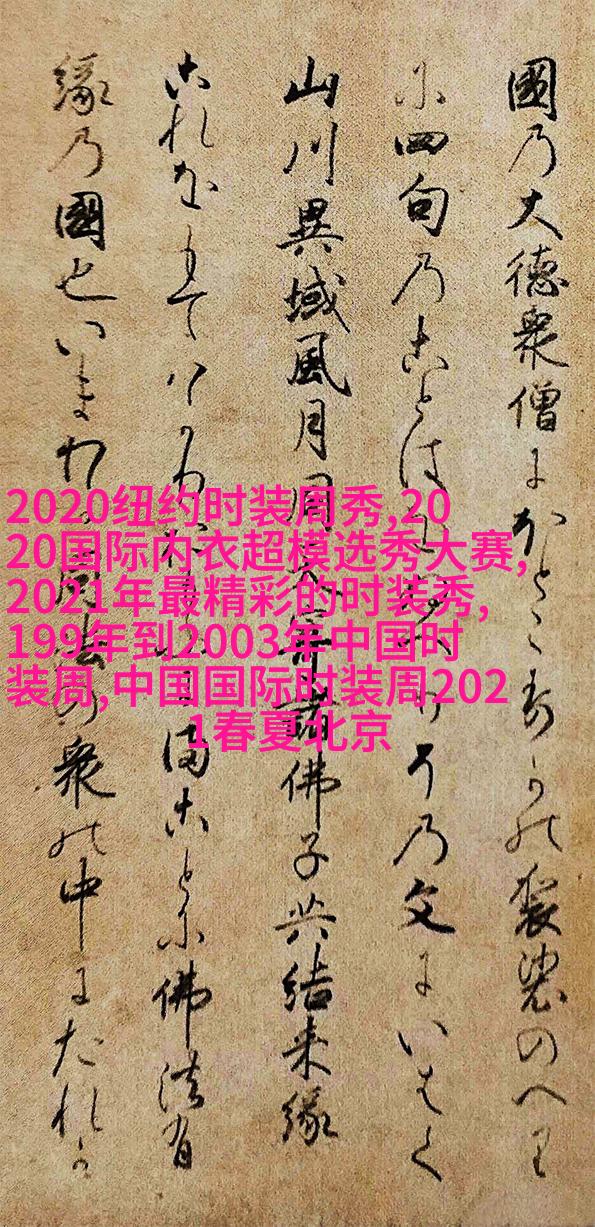 國乃大徳衆僧にほとこすかの袈裟のへり
に四句乃ことは乃文にいはく
山川異域風月同天寄諸佛子共結来縁
これをもてはかことに佛法有
縁乃國也いまわ衆の中にたれか
2020纽约时装周秀,20
20国际内衣超模选秀大赛,
2021年最精彩的时装秀,
199年到2003年中国时
装周,中国国际时装周202
1春夏北京